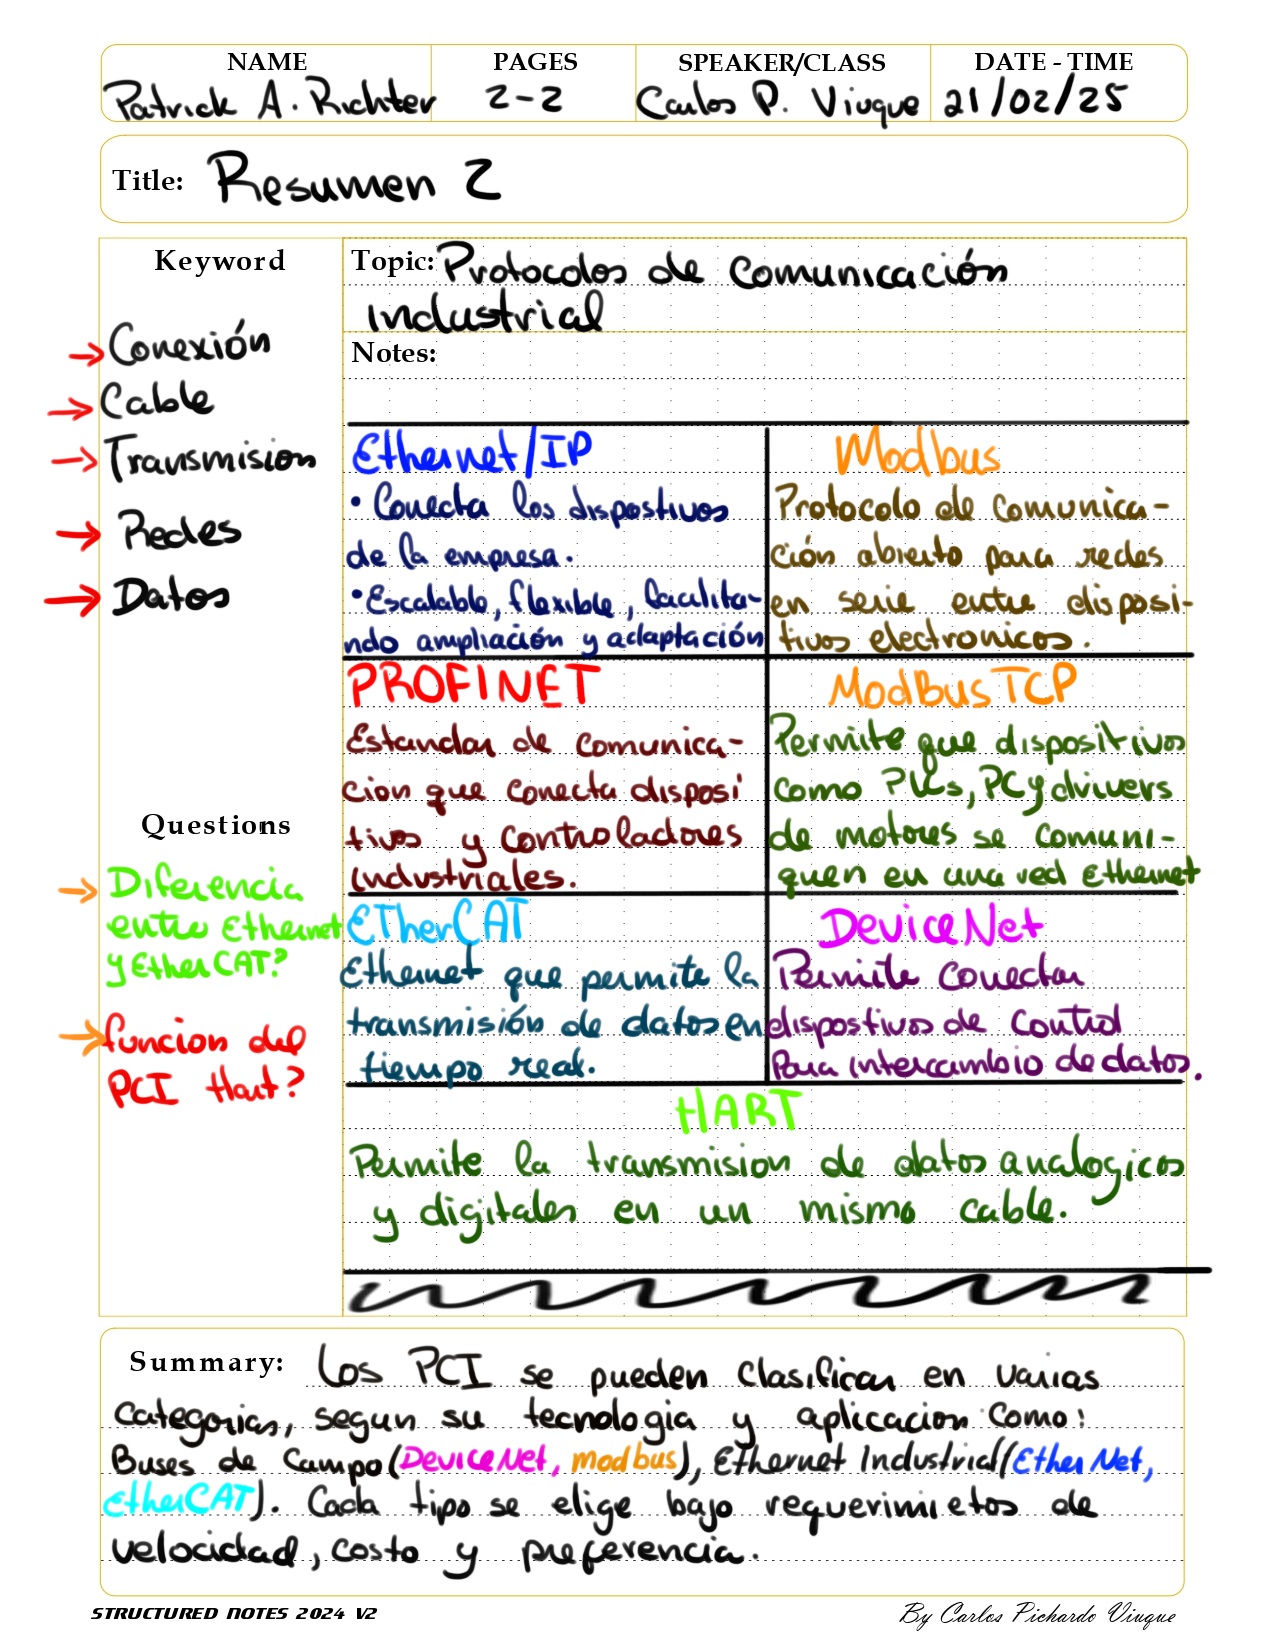 NAME PAGES SPEAKER/CLASS DATE - TIME
Patrick A. Richter 2-2 Carlos P. Viuque 21/02/25
Title: Resumen 2
Keyword
→ Conexión
→ Cable
→ Transmision
→ Redes
→ Datos
Questions
→ Diferencia
entre Ethernet
y EtherCAT?
→ funcion del
PCI Hart?
Topic: Protocolos de Comunicación
Industrial
Notes:
Ethernet/IP
• Conecta los dispostivos
de la empresa.
• Escalable, flexible, facilita-
ndo ampliación y adaptación
Modbus
Protocolo de comunica-
ción abierto para redes
en serie entre disposi-
tivos electronicos.
PROFINET
Estandar de comunica-
cion que conecta disposi
tivos y controladores
industriales.
ModBus TCP
Permite que dispositivos
como PLCs, PC y drivers
de motores se comuni-
quen en una red Ethernet
ETherCAT
Ethernet que permite la
transmisión de datos en
tiempo real.
DeviceNet
Permite conectar
dispostivos de control
Para intercambio de datos.
HART
Permite la transmision de datos analogicos
y digitales en un mismo cable.
Summary: Los PCI se pueden clasificar en varias
Categorias, segun su tecnologia y aplicacion como:
Buses de Campo(DeviceNet, modbus), Ethernet Industrial(EtherNet,
EtherCAT). Cada tipo se elige bajo requerimietos de
velocidad, costo y preferencia.
STRUCTURED NOTES 2024 V2
By Carlos Pichardo Viuque